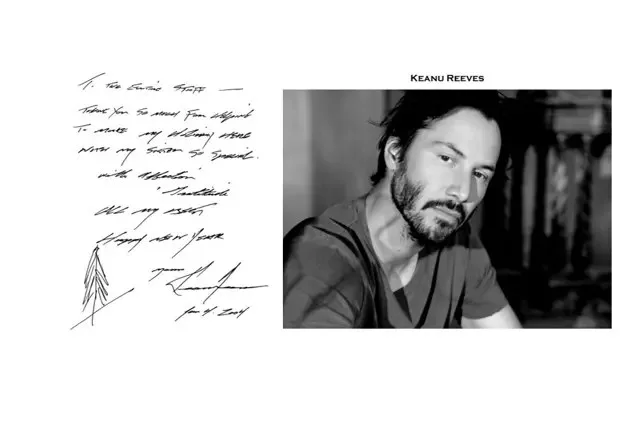 To the Entire Staff —
Thank you so much for helping
to make my visiting here
with my sister so special.
with affection
Gratitude
all my best
Happy New Year
yours
Jan 4. 2004
KEANU REEVES